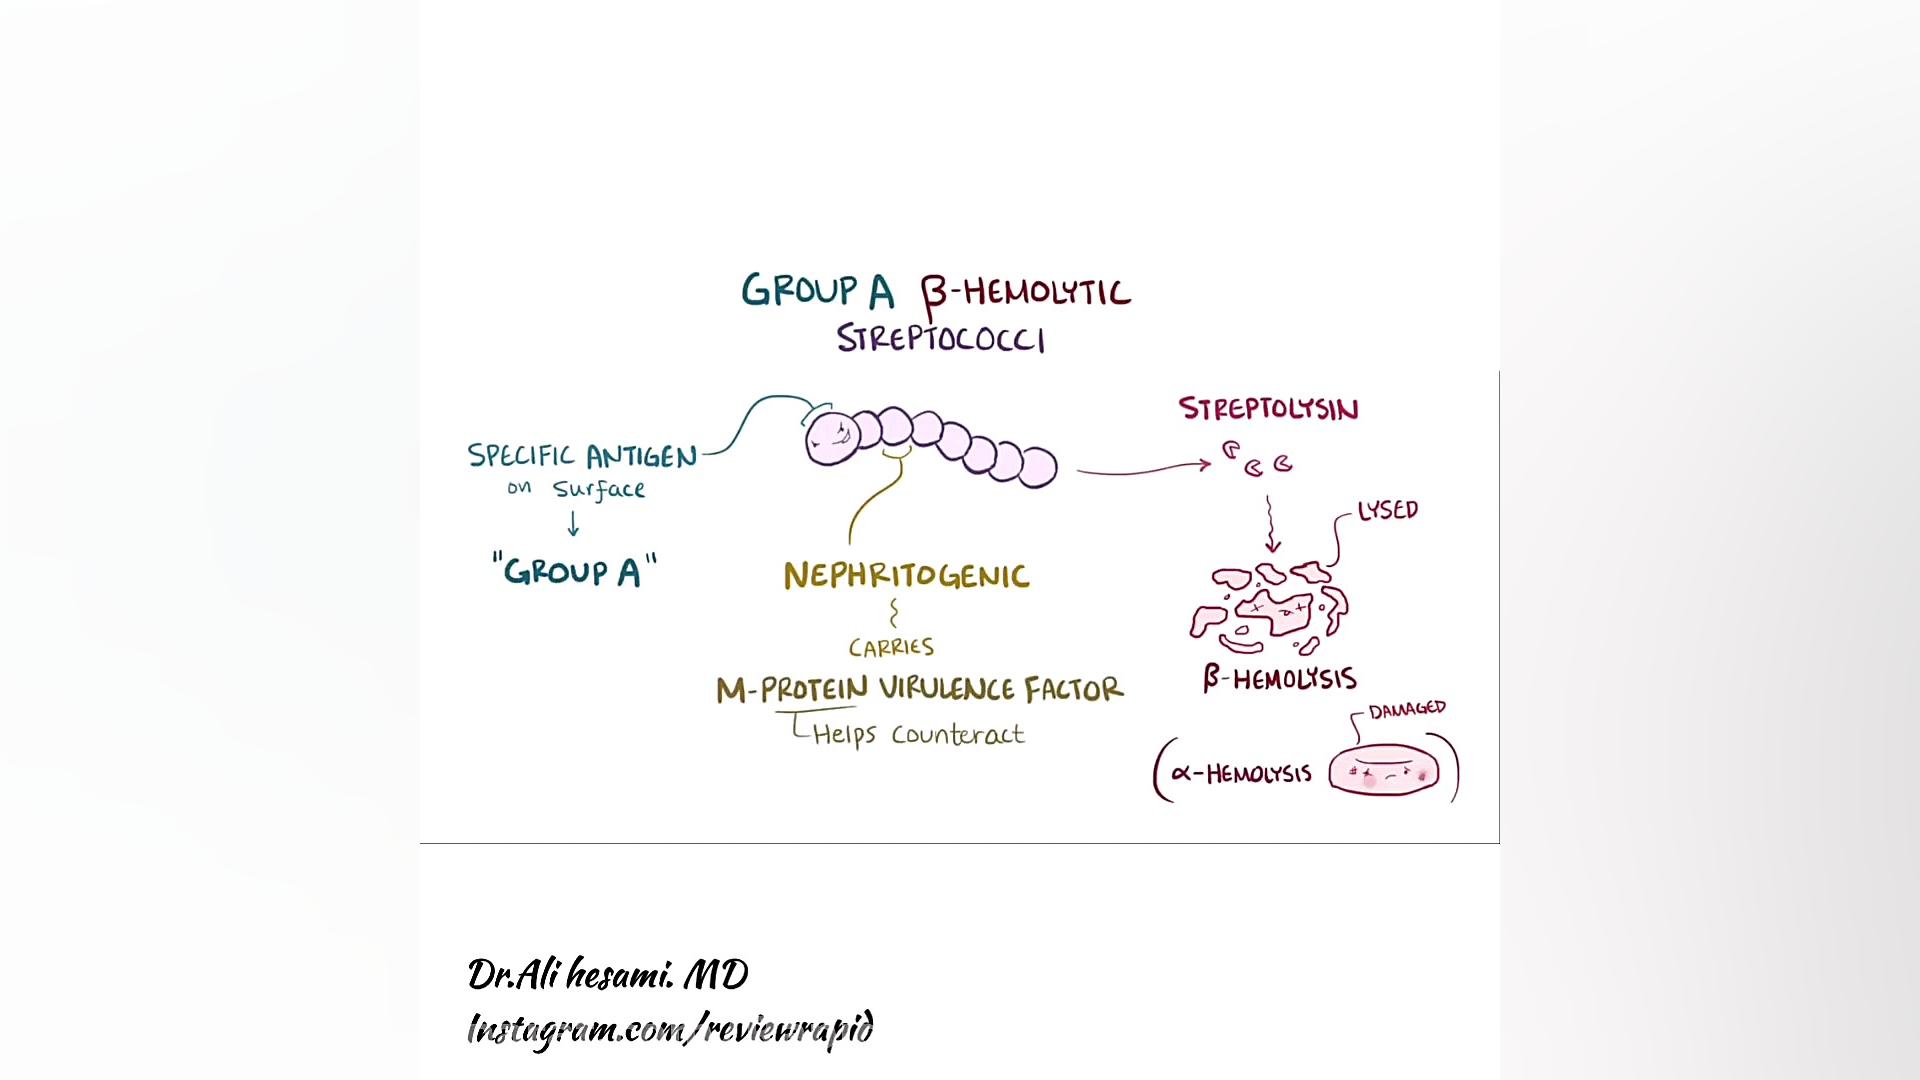 GROUP A β-HEMOLYTIC
STREPTOCOCCI
SPECIFIC ANTIGEN
on surface
↓
"GROUP A"
NEPHRITOGENIC
CARRIES
M-PROTEIN VIRULENCE FACTOR
Helps counteract
STREPTOLYSIN
LYSED
β-HEMOLYSIS
DAMAGED
(α-HEMOLYSIS )
Dr.Ali hesami. MD
Instagram.com/reviewrapid